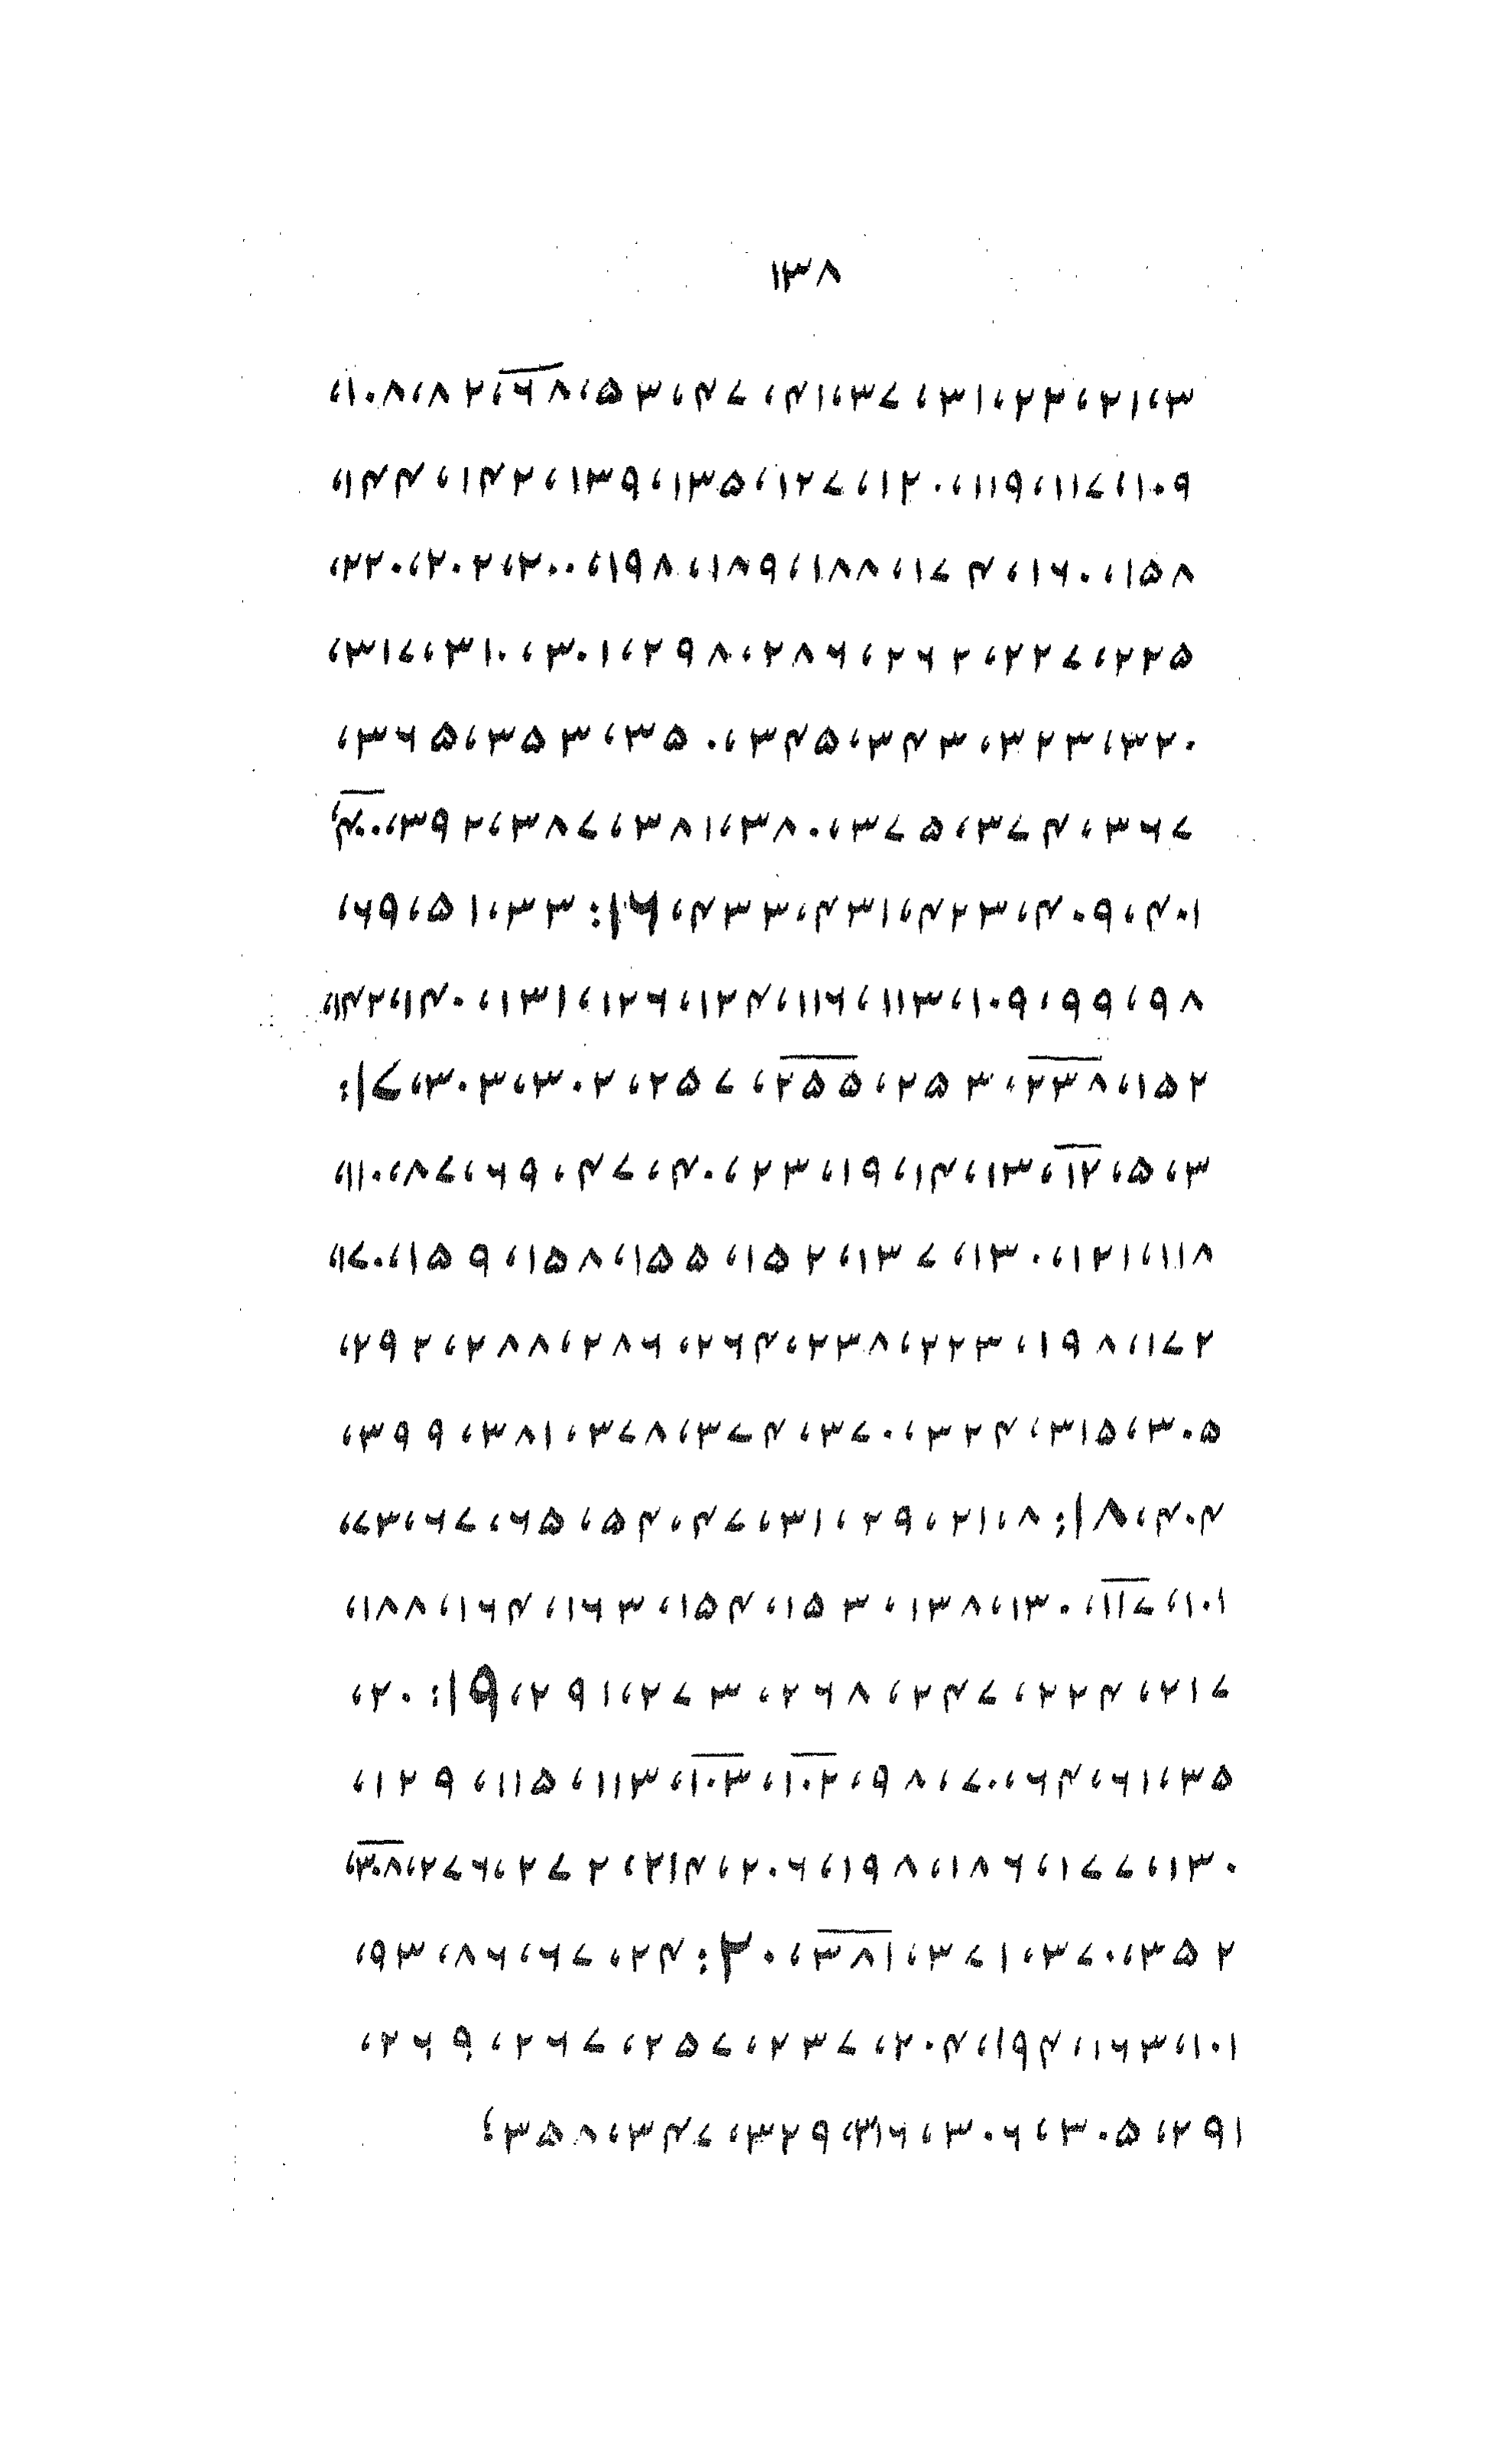 ۱۳۸
۳،۲۱،۲۳،۳۱،۳۷،۴۱،۴۷،۵۳،۶۸،۸۲،۱۰۸،
۱۰۹،۱۱۷،۱۱۹،۱۲۰،۱۲۷،۱۳۵،۱۳۹،۱۴۲،۱۴۴،
۱۵۸،۱۶۰،۱۷۴،۱۸۸،۱۸۹،۱۹۸،۲۰۰،۲۰۲،۲۲۰،
۲۲۵،۲۲۷،۲۶۲،۲۸۶،۲۹۸،۳۰۱،۳۱۰،۳۱۷،
۳۲۰،۳۲۳،۳۴۳،۳۴۵،۳۵۰،۳۵۳،۳۶۵،
۳۶۷،۳۷۴،۳۷۵،۳۸۰،۳۸۱،۳۸۷،۳۹۲،۴۰۰،
۴۰۱،۴۰۹،۴۲۳،۴۳۱،۴۳۳،۱۶: ۳۳،۵۱،۶۹،
۹۸،۹۹،۱۰۹،۱۱۳،۱۱۶،۱۲۴،۱۲۶،۱۳۱،۱۴۰،۱۴۲،
۱۵۲،۲۳۸،۲۵۳،۲۵۵،۲۵۷،۳۰۲،۳۰۳،۱۷:
۳،۵،۱۲،۱۳،۱۴،۱۹،۲۳،۴۰،۴۷،۶۹،۸۷،۱۱۰،
۱۱۸،۱۲۱،۱۳۰،۱۳۷،۱۵۲،۱۵۵،۱۵۸،۱۵۹،۱۷۰،
۱۷۲،۱۹۸،۲۲۳،۲۳۸،۲۶۴،۲۸۶،۲۸۸،۲۹۲،
۳۰۵،۳۱۵،۳۲۴،۳۷۰،۳۷۴،۳۷۸،۳۸۱،۳۹۹،
۴۰۴،۱۸: ۸،۲۱،۲۹،۳۱،۴۷،۵۴،۶۵،۶۷،۷۳،
۱۰۱،۱۱۷،۱۳۰،۱۳۸،۱۵۳،۱۵۴،۱۶۳،۱۶۴،۱۸۸،
۲۱۷،۲۲۴،۲۴۷،۲۶۸،۲۷۳،۲۹۱،۱۹: ۲۰،
۳۵،۶۱،۶۴،۷۰،۹۸،۱۰۲،۱۰۳،۱۱۳،۱۱۵،۱۲۹،
۱۳۰،۱۷۷،۱۸۶،۱۹۸،۲۰۶،۲۱۴،۲۷۲،۲۷۶،۳۰۸،
۳۵۲،۳۷۰،۳۷۱،۳۸۱،۲۰: ۲۴،۶۷،۸۶،۹۳،
۱۰۱،۱۶۳،۱۹۴،۲۰۴،۲۳۷،۲۵۷،۲۶۷،۲۶۹،
۲۹۱،۳۰۵،۳۰۶،۳۱۶،۳۲۹،۳۴۷،۳۵۸؛